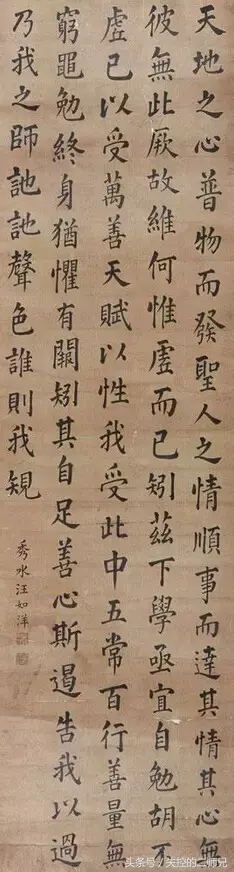 天地之心普物而發聖人之情順事而達其情其心無
彼無此厥故維何惟虛而已矧茲下學亟宜自勉胡不
虛已以受萬善天賦以性我受此中五常百行善量無
窮黽勉終身猶懼有闕矧其自足善心斯遏告我以過
乃我之師訑訑聲色誰則我規
秀水汪如洋
头条号／失控的二师兄